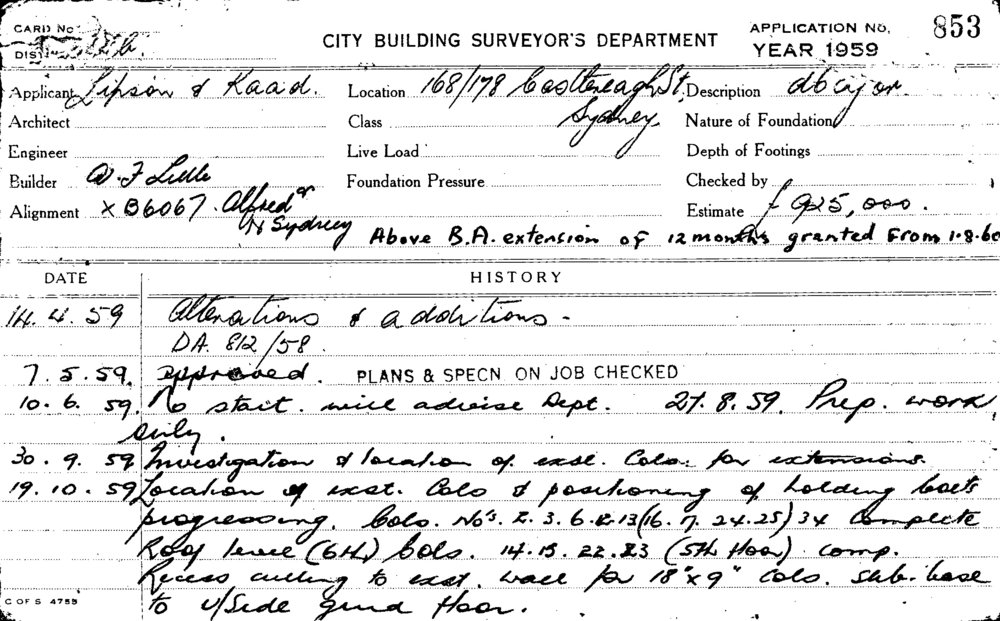 CARD No
CITY BUILDING SURVEYOR'S DEPARTMENT
APPLICATION No. 853
DIST
YEAR 1959
Applicant Lipson & Kaad. Location 168/178 Castlereagh St, Sydney. Description
Architect Class Nature of Foundation
Engineer Live Load Depth of Footings
Builder A. F Little Foundation Pressure Checked by
Alignment X B6067. Alfred St N Sydney Estimate £ 925,000.
Above B.A. extension of 12 months granted From 1.8.60
DATE HISTORY
14. 4. 59 Alterations & additions -
DA. 812/58.
7. 5. 59. approved. PLANS & SPECN. ON JOB CHECKED
10. 6. 59. No start. will advise Dept. 27. 8. 59. Prep. work
only.
30. 9. 59 Investigation & location of exst. Cols. for extensions.
19. 10. 59 Location of exst. Cols & positioning of holding bolts
progressing. Cols. No's. 2. 3. 6. 12. 13 (16. 17. 24. 25) 34 Complete
Roof level (6th) Cols. 14. 15. 22. 23 (5th floor) comp.
Recess cutting to exst. wall for 18" x 9" Cols. sub. base
to u/side grnd floor.
C OF S 4755